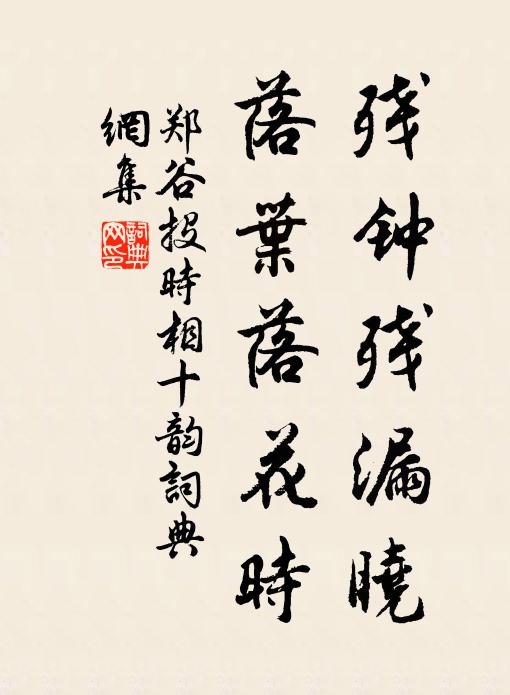 残钟残漏曉
落葉落花時
郑谷投時相十韵詞典
網集
詞典
网印